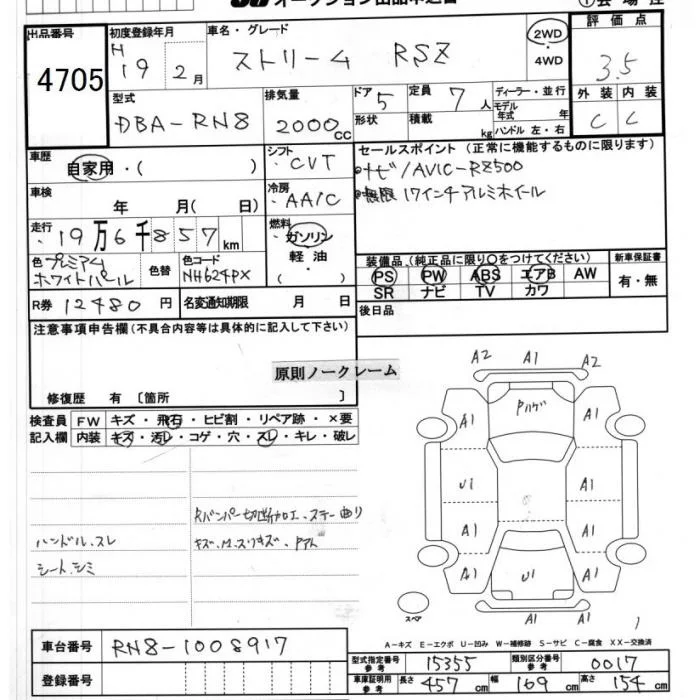 オークション出品申込書
出品番号
4705
初度登録年月
H
19 2月
車名・グレード
ストリーム RSZ
2WD
・
4WD
評価点
3.5
外装 内装
C C
型式
DBA-RN8
排気量
2000cc
ドア 5
形状
定員 7人
積載 kg
ディーラー・並行
モデル年式 年
ハンドル 左・右
車歴
自家用・( )
シフト
・CVT
セールスポイント(正常に機能するものに限ります)
・ナビ/AVIC-RZ500
・無限17インチアルミホイール
車検
年 月( 日)
冷房
・AAC
走行
・19万6千857km
燃料
・ガソリン
軽油
・( )
色 プレミアム
ホワイトパール
色替
色コード
NH624PX
装備品(純正品に限り○をつけてください)
PS PW ABS エアB AW
SR ナビ TV カワ
新車保証書
有・無
R券 12480円
名変通知期限 月 日
後日品
注意事項申告欄(不具合内容等は具体的に記入して下さい)
原則ノークレーム
修復歴 有 〔箇所 〕
検査員
記入欄
FW キズ・飛石・ヒビ割・リペア跡・×要
内装 キズ・汚レ・コゲ・穴・スレ・キレ・破レ
ハンドル.スレ
シート.シミ
Rバンパー切断加工.ステー曲り
A2 A1 A2
A1 A1
U1 A1
A1 A1
A1 U1 A1
A1 A1
スペア
A-キズ E-エクボ U-凹み W-補修跡 S-サビ C-腐食 XX-交換済
車台番号 RN8-1008917
登録番号
型式指定番号
参考
15355
類別区分番号
参考
0017
車庫証明用
参考
長さ 457cm 幅 169cm 高さ 154cm